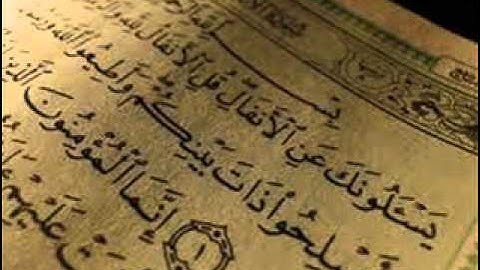 يَسْـَٔلُونَكَ عَنِ ٱلْأَنفَالِ قُلِ ٱلْأَنفَالُ لِلَّهِ
ذَاتَ بَيْنِكُمْ وَأَطِيعُوا۟ ٱللَّهَ
١ إِنَّمَا ٱلْمُؤْمِنُونَ ٱلَّذِينَ
عَلَيْهِمْ